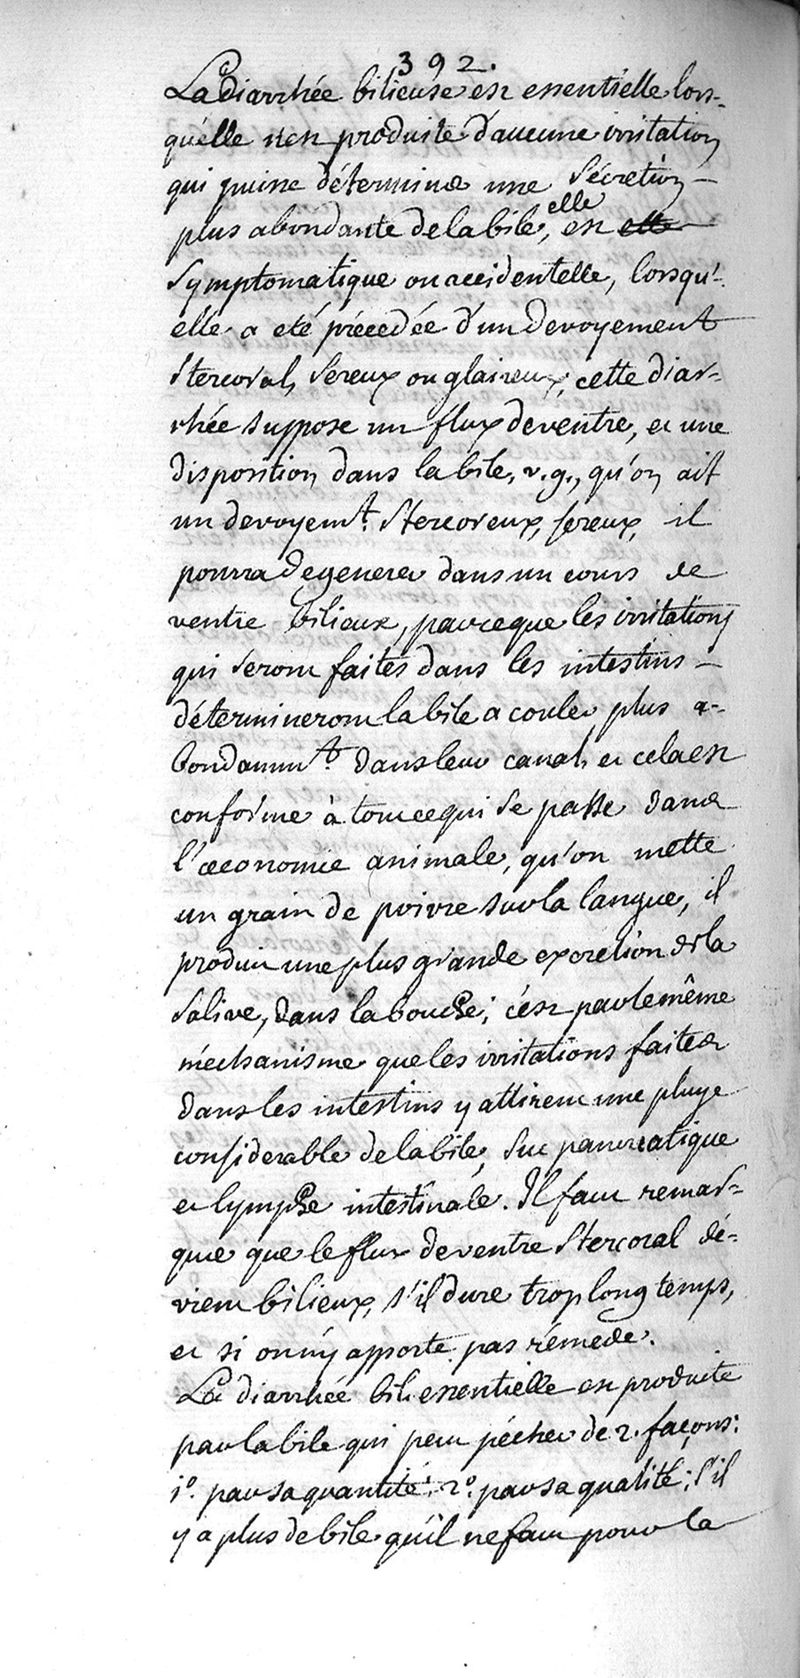 392.
La diarrhée bilieuse est essentielle lors-
qu'elle n'est produite d'aucune irritation
qui puisse déterminer une sécretion
plus abondante de la bile, elle est elle
symptomatique ou accidentelle, lorsqu'-
elle a eté précedée d'un devoyement
stercoral, sereux ou glaireux; cette diar-
rhée suppose un flux de ventre, et une
disposition dans la bile, v.g., qu'on ait
un devoyemt. stercoreux, sereux, il
pourra degenerer dans un cours de
ventre bilieux, parceque les irritations
qui seront faites dans les intestins
détermineront la bile a couler plus a-
bondammt. dans leur canal, et cela est
conforme à tout ce qui se passe dans
l'œconomie animale, qu'on mette
un grain de poivre sur la langue, il
produit une plus grande excretion de la
salive, dans la bouche; c'est par le même
méchanisme que les irritations faites
dans les intestins y attirent une pluye
considerable de la bile, suc pancreatique
et lymphe intestinale. Il faut remar-
quer que le flux de ventre stercoral dé-
vient bilieux, s'il dure trop long temps,
et si on n'y apporte pas rémede.
La diarrhée bil. essentielle est produite
par la bile qui peut pécher de 2. façons:
1º. par sa quantité: 2º. par sa qualité; s'il
y a plus de bile qu'il ne faut pour la